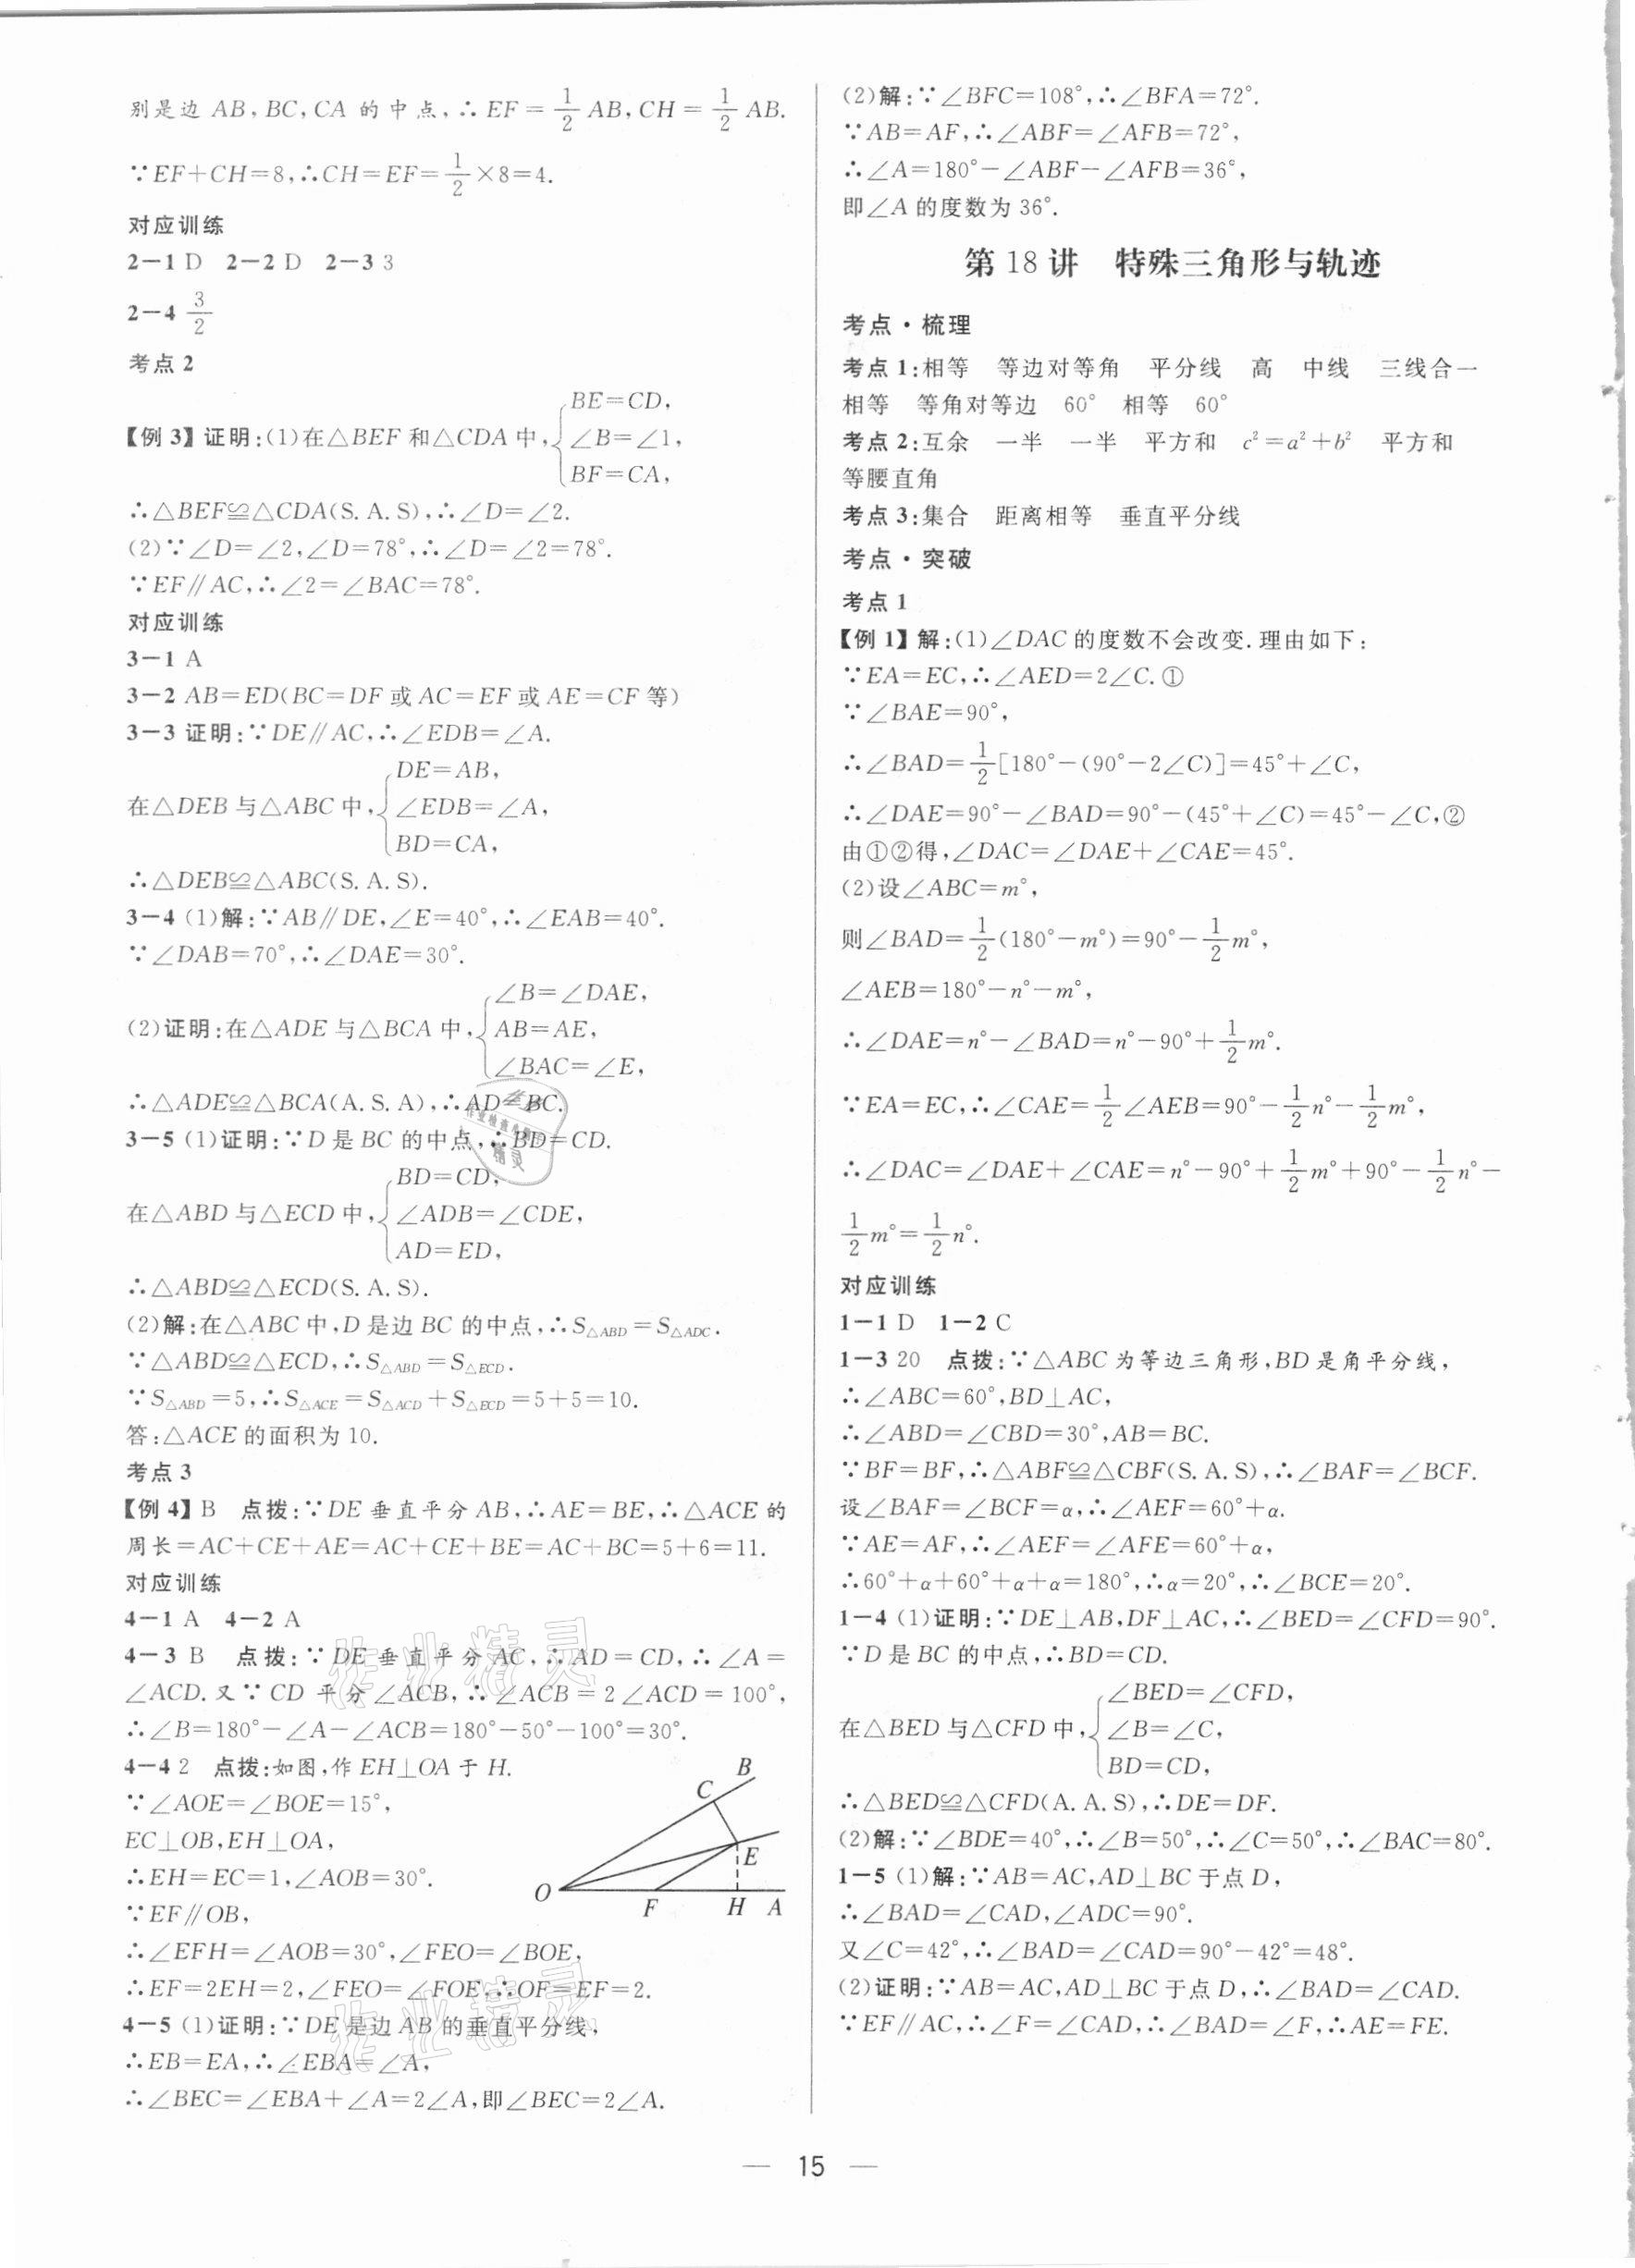 别是边 AB,BC,CA 的中点,∴EF=1/2AB,CH=1/2AB.
∵EF+CH=8,∴CH=EF=1/2×8=4.
对应训练
2-1 D 2-2 D 2-3 3
2-4 3/2
考点 2
【例 3】证明:(1)在△BEF 和△CDA 中,{BE=CD,
∠B=∠1,
BF=CA,
∴△BEF≌△CDA(S.A.S),∴∠D=∠2.
(2)∵∠D=∠2,∠D=78°,∴∠D=∠2=78°.
∵EF∥AC,∴∠2=∠BAC=78°.
对应训练
3-1 A
3-2 AB=ED(BC=DF 或 AC=EF 或 AE=CF 等)
3-3 证明:∵DE∥AC,∴∠EDB=∠A.
在△DEB 与△ABC 中,{DE=AB,
∠EDB=∠A,
BD=CA,
∴△DEB≌△ABC(S.A.S).
3-4 (1)解:∵AB∥DE,∠E=40°,∴∠EAB=40°.
∵∠DAB=70°,∴∠DAE=30°.
(2)证明:在△ADE 与△BCA 中,{∠B=∠DAE,
AB=AE,
∠BAC=∠E,
∴△ADE≌△BCA(A.S.A),∴AD=BC.
3-5 (1)证明:∵D 是 BC 的中点,∴BD=CD.
在△ABD 与△ECD 中,{BD=CD,
∠ADB=∠CDE,
AD=ED,
∴△ABD≌△ECD(S.A.S).
(2)解:在△ABC 中,D 是边 BC 的中点,∴S△ABD=S△ADC.
∵△ABD≌△ECD,∴S△ABD=S△ECD.
∵S△ABD=5,∴S△ACE=S△ACD+S△ECD=5+5=10.
答:△ACE 的面积为 10.
考点 3
【例 4】B 点拨:∵DE 垂直平分 AB,∴AE=BE,∴△ACE 的
周长=AC+CE+AE=AC+CE+BE=AC+BC=5+6=11.
对应训练
4-1 A 4-2 A
4-3 B 点拨:∵DE 垂直平分 AC,∴AD=CD,∴∠A=
∠ACD.又∵CD 平分∠ACB,∴∠ACB=2∠ACD=100°,
∴∠B=180°-∠A-∠ACB=180°-50°-100°=30°.
4-4 2 点拨:如图,作 EH⊥OA 于 H.
∵∠AOE=∠BOE=15°,
EC⊥OB,EH⊥OA,
∴EH=EC=1,∠AOB=30°.
∵EF∥OB,
∴∠EFH=∠AOB=30°,∠FEO=∠BOE,
∴EF=2EH=2,∠FEO=∠FOE,∴OF=EF=2.
B
C
E
O
F
H
A
4-5 (1)证明:∵DE 是边 AB 的垂直平分线,
∴EB=EA,∴∠EBA=∠A,
∴∠BEC=∠EBA+∠A=2∠A,即∠BEC=2∠A.
(2)解:∵∠BFC=108°,∴∠BFA=72°.
∵AB=AF,∴∠ABF=∠AFB=72°,
∴∠A=180°-∠ABF-∠AFB=36°,
即∠A 的度数为 36°.
第 18 讲 特殊三角形与轨迹
考点·梳理
考点 1:相等 等边对等角 平分线 高 中线 三线合一
相等 等角对等边 60° 相等 60°
考点 2:互余 一半 一半 平方和 c²=a²+b² 平方和
等腰直角
考点 3:集合 距离相等 垂直平分线
考点·突破
考点 1
【例 1】解:(1)∠DAC 的度数不会改变.理由如下:
∵EA=EC,∴∠AED=2∠C.①
∵∠BAE=90°,
∴∠BAD=1/2[180°-(90°-2∠C)]=45°+∠C,
∴∠DAE=90°-∠BAD=90°-(45°+∠C)=45°-∠C,②
由①②得,∠DAC=∠DAE+∠CAE=45°.
(2)设∠ABC=m°,
则∠BAD=1/2(180°-m°)=90°-1/2m°,
∠AEB=180°-n°-m°,
∴∠DAE=n°-∠BAD=n°-90°+1/2m°.
∵EA=EC,∴∠CAE=1/2∠AEB=90°-1/2n°-1/2m°,
∴∠DAC=∠DAE+∠CAE=n°-90°+1/2m°+90°-1/2n°-
1/2m°=1/2n°.
对应训练
1-1 D 1-2 C
1-3 20 点拨:∵△ABC 为等边三角形,BD 是角平分线,
∴∠ABC=60°,BD⊥AC,
∴∠ABD=∠CBD=30°,AB=BC.
∵BF=BF,∴△ABF≌△CBF(S.A.S),∴∠BAF=∠BCF.
设∠BAF=∠BCF=α,∴∠AEF=60°+α.
∵AE=AF,∴∠AEF=∠AFE=60°+α,
∴60°+α+60°+α+α=180°,∴α=20°,∴∠BCE=20°.
1-4 (1)证明:∵DE⊥AB,DF⊥AC,∴∠BED=∠CFD=90°.
∵D 是 BC 的中点,∴BD=CD.
在△BED 与△CFD 中,{∠BED=∠CFD,
∠B=∠C,
BD=CD,
∴△BED≌△CFD(A.A.S),∴DE=DF.
(2)解:∵∠BDE=40°,∴∠B=50°,∴∠C=50°,∴∠BAC=80°.
1-5 (1)解:∵AB=AC,AD⊥BC 于点 D,
∴∠BAD=∠CAD,∠ADC=90°.
又∠C=42°,∴∠BAD=∠CAD=90°-42°=48°.
(2)证明:∵AB=AC,AD⊥BC 于点 D,∴∠BAD=∠CAD.
∵EF∥AC,∴∠F=∠CAD,∴∠BAD=∠F,∴AE=FE.
— 15 —
作业精灵
作业精灵